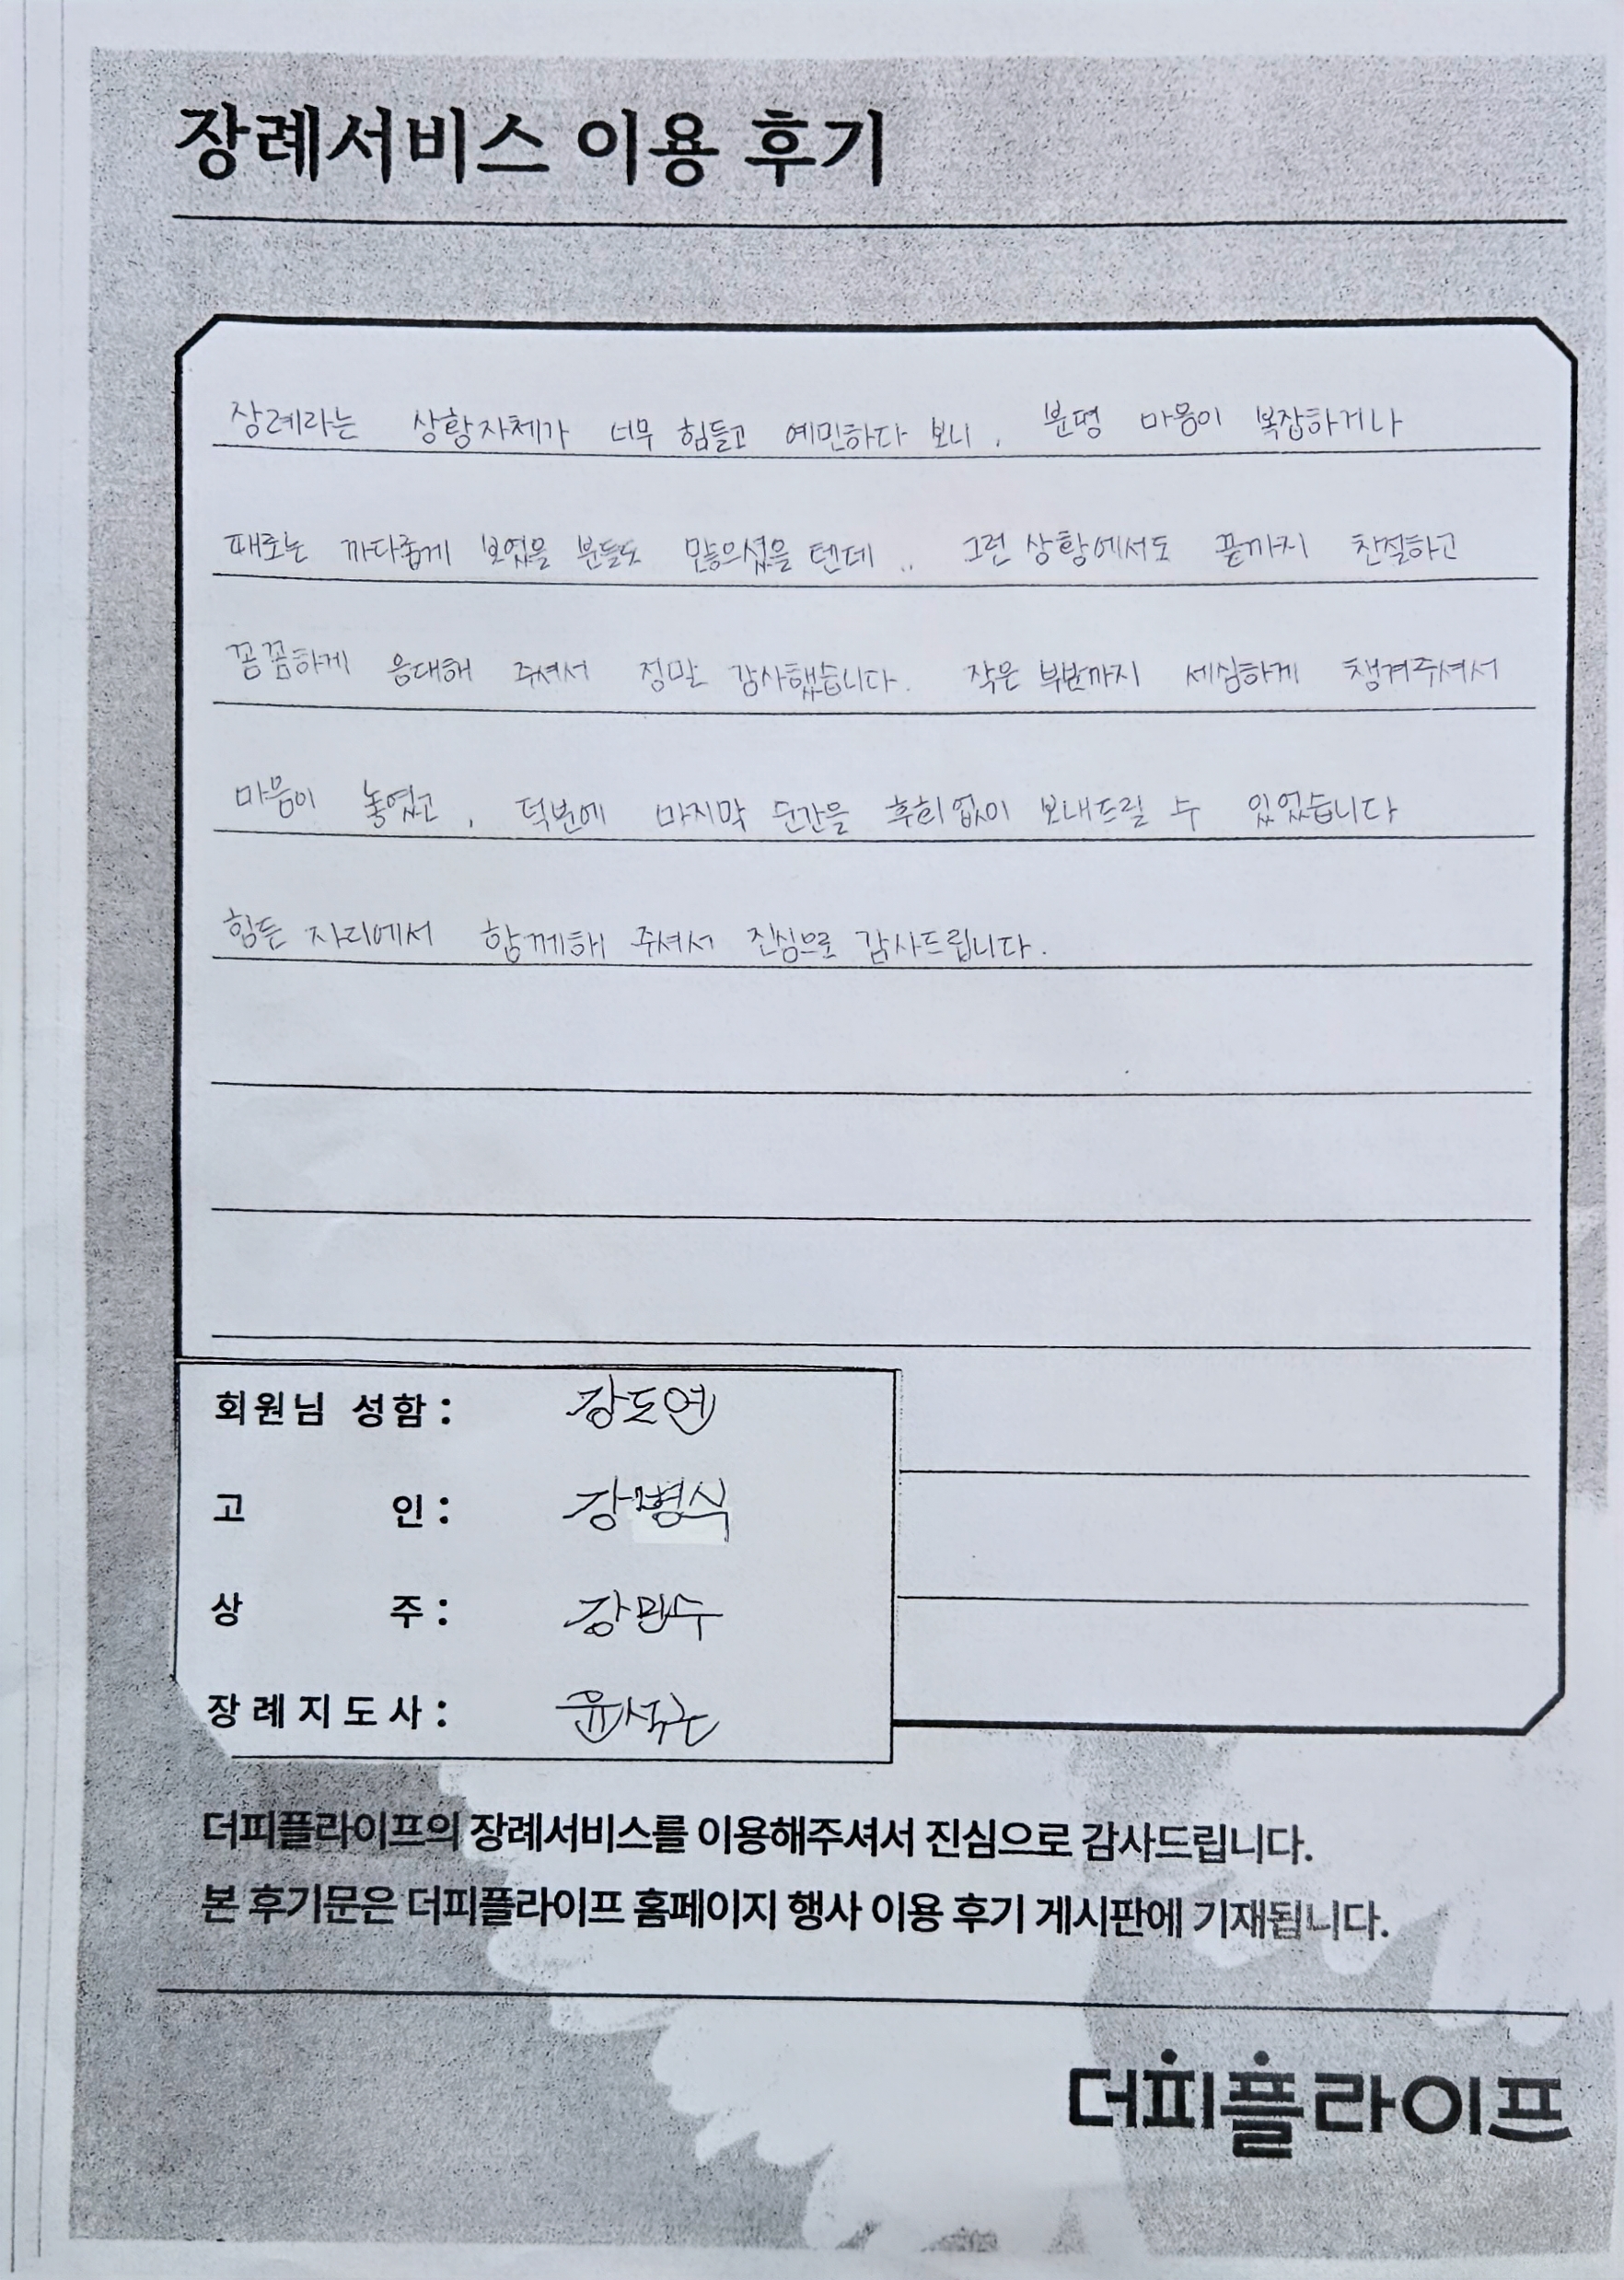 장례서비스 이용 후기
장례라는 상황자체가 너무 힘들고 예민하다 보니, 분명 마음이 복잡하거나
때로는 까다롭게 보였을 분들도 많으셨을 텐데.. 그런 상황에서도 끝까지 친절하고
꼼꼼하게 응대해 주셔서 정말 감사했습니다. 작은 부분까지 세심하게 챙겨주셔서
마음이 놓였고, 덕분에 마지막 순간을 후회없이 보내드릴 수 있었습니다
힘든 자리에서 함께해 주셔서 진심으로 감사드립니다.
회원님 성함: 강도연
고 인: 강병식
상 주: 강민수
장례지도사: 윤석근
더피플라이프의 장례서비스를 이용해주셔서 진심으로 감사드립니다.
본 후기문은 더피플라이프 홈페이지 행사 이용 후기 게시판에 기재됩니다.
더피플라이프